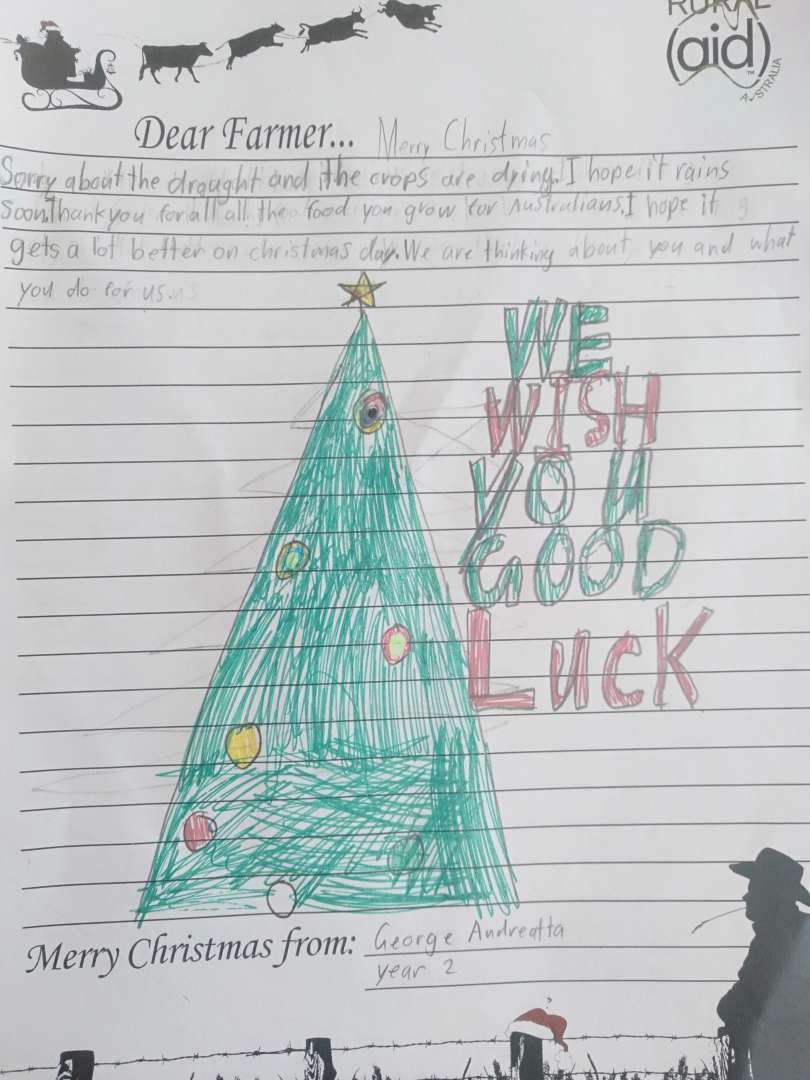 RURAL
(aid)™
AUSTRALIA
Dear Farmer... Merry Christmas
Sorry about the draught and the crops are dying. I hope it rains
Soon. Thank you for all all the food you grow for Australians. I hope it
gets a lot better on christmas day. We are thinking about you and what
you do for us.
WE
WISH
YOU
GOOD
LucK
Merry Christmas from: George Andreatta
year 2